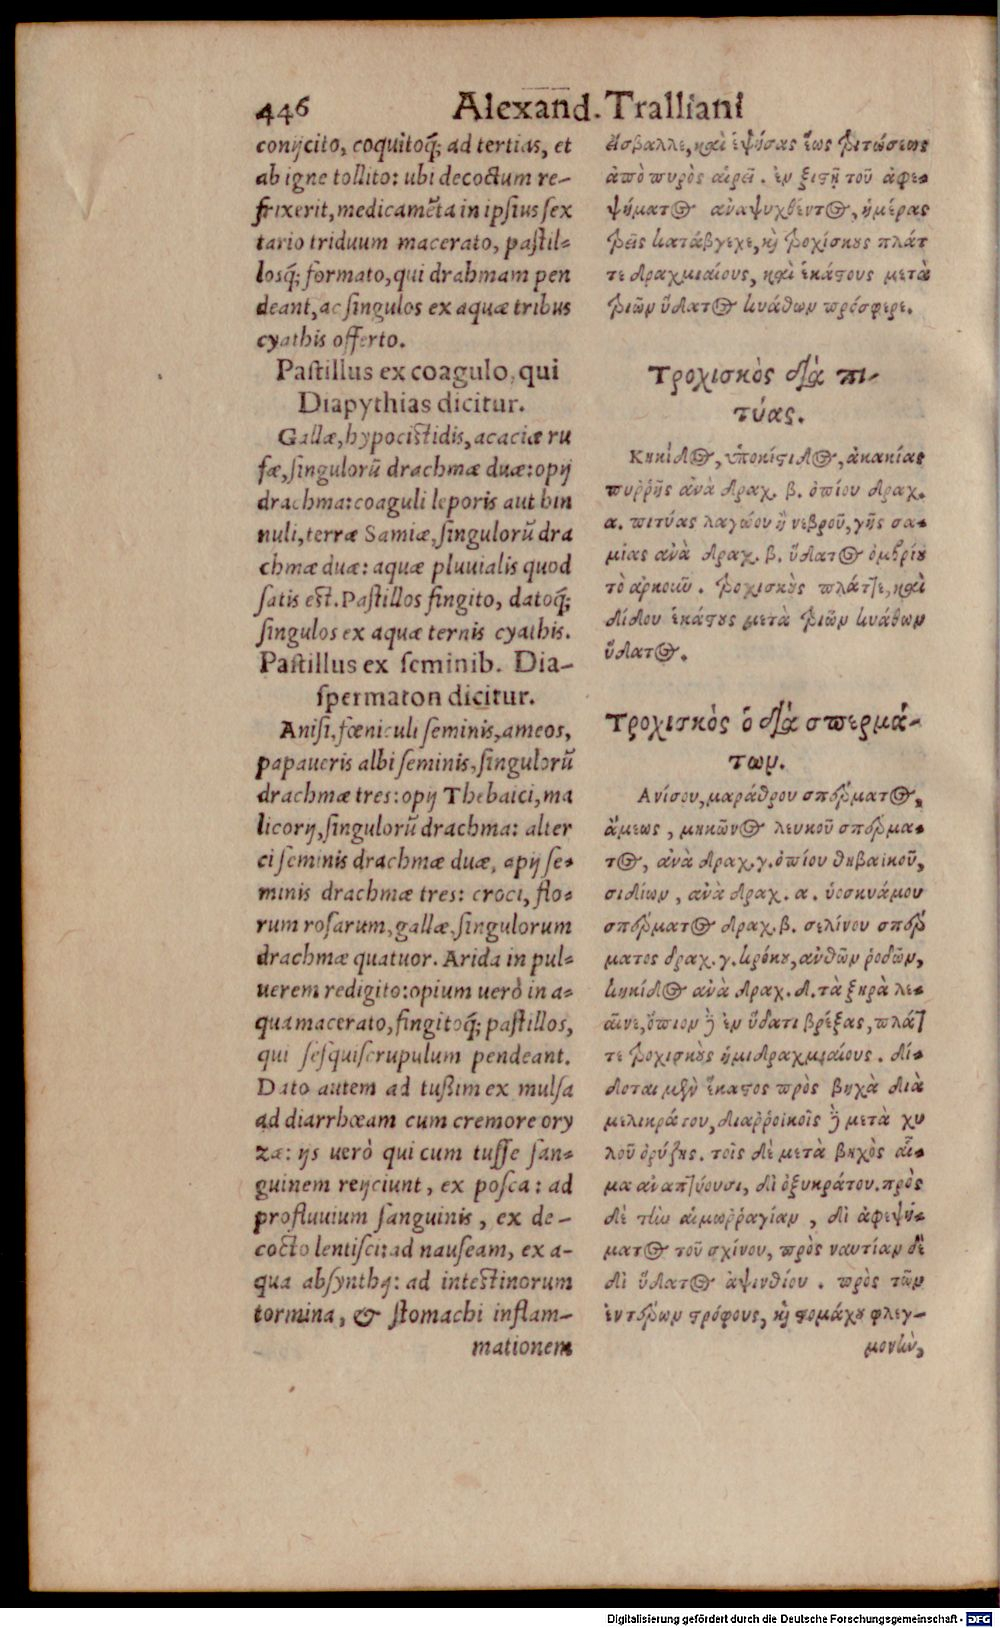 446 Alexand. Tralliani
conijcito, coquitoq́; ad tertias, et
ab igne tollito: ubi decoctum re-
frixerit, medicamēta in ipsius sex
tario triduum macerato, pastil-
losq́; formato, qui drahmam pen
deant, ac singulos ex aquæ tribus
cyathis offerto.
Pastillus ex coagulo, qui
Diapythias dicitur.
Gallæ, hypocistidis, acaciæ ru
fæ, singulorū drachmæ duæ: opij
drachma: coaguli leporis aut hin
nuli, terræ Samiæ, singulorū dra
chmæ duæ: aquæ pluuialis quod
satis est. Pastillos fingito, datoq́;
singulos ex aquæ ternis cyathis.
Pastillus ex seminib. Dia-
spermaton dicitur.
Anisi, fœniculi seminis, ameos,
papaueris albi seminis, singulorū
drachmæ tres: opij Thebaici, ma
licorij, singulorū drachma: alter
ci seminis drachmæ duæ, apij se-
minis drachmæ tres: croci, flo-
rum rosarum, gallæ, singulorum
drachmæ quatuor. Arida in pul-
uerem redigito: opium uerò in a-
qua macerato, fingitoq́; pastillos,
qui sesquiscrupulum pendeant.
Dato autem ad tußim ex mulsa
ad diarrhœam cum cremore ory
zæ: ijs uerò qui cum tusse san-
guinem reijciunt, ex posca: ad
profluuium sanguinis, ex de-
cocto lentisci: ad nauseam, ex a-
qua absynthij: ad intestinorum
tormina, & stomachi inflam-
mationem
εἴσβαλλε, καὶ ἑψήσας ἕως τριτώσεως
ἀπὸ πυρὸς αἶρε. ἐν ξέστῃ τοῦ ἀφε-
ψήματος ἀναψυχθέντος, ἡμέρας
τρεῖς κατάβρεχε, καὶ τροχίσκους πλάτ
τε δραχμιαίους, καὶ ἑκάστους μετὰ
τριῶν ὕδατος κυάθων πρόσφερε.
Τροχισκὸς διὰ πι-
τύας.
Κηκίδος, ὑποκιστίδος, ἀκακίας
πυῤῥῆς ἀνὰ δραχ. β. ὀπίου δραχ.
α. πιτύας λαγώου ἢ νεβροῦ, γῆς σα-
μίας ἀνὰ δραχ. β. ὕδατος ὀμβρίου
τὸ ἀρκοιῶ. τροχισκοὺς πλάττε, καὶ
δίδου ἑκάστους μετὰ τριῶν κυάθων
ὕδατος.
Τροχισκὸς ὁ διὰ σπερμά-
των.
Ανίσου, μαράθρου σπέρματος,
ἄμεως, μήκωνος λευκοῦ σπέρμα-
τος, ἀνὰ δραχ. γ. ὀπίου θηβαϊκοῦ,
σιδίων, ἀνὰ δραχ. α. ὑοσκυάμου
σπέρματος δραχ. β. σελίνου σπέρ
ματος δραχ. γ. κρόκου, ἀνθῶν ῥόδων,
κηκίδος ἀνὰ δραχ. δ. τὰ ξηρὰ λε-
αῖνε, ὄπιον ἢ ἐν ὕδατι βρέξας, πλάτ
τε τροχισκοὺς ἡμιδραχμιαίους. δί-
δοται μὲν ἕκαστος πρὸς βηχὰ διὰ
μελικράτου, διαῤῥοικοῖς ἢ μετὰ χυ
λοῦ ὀρύζης. τοῖς δὲ μετὰ βηχὸς αἷ-
μα ἀναπτύουσι, δι ὀξυκράτου. πρὸς
δὲ τὴν αἱμωῤῥαγίαν, δι ἀφεψή-
ματος τοῦ σχίνου, πρὸς ναυτίαν δὲ
δι ὕδατος ἀψινθίου. πρὸς τῶν
ἐντέρων στρόφους, καὶ στομάχου φλεγ-
μονὴν,
Digitalisierung gefördert durch die Deutsche Forschungsgemeinschaft - DFG